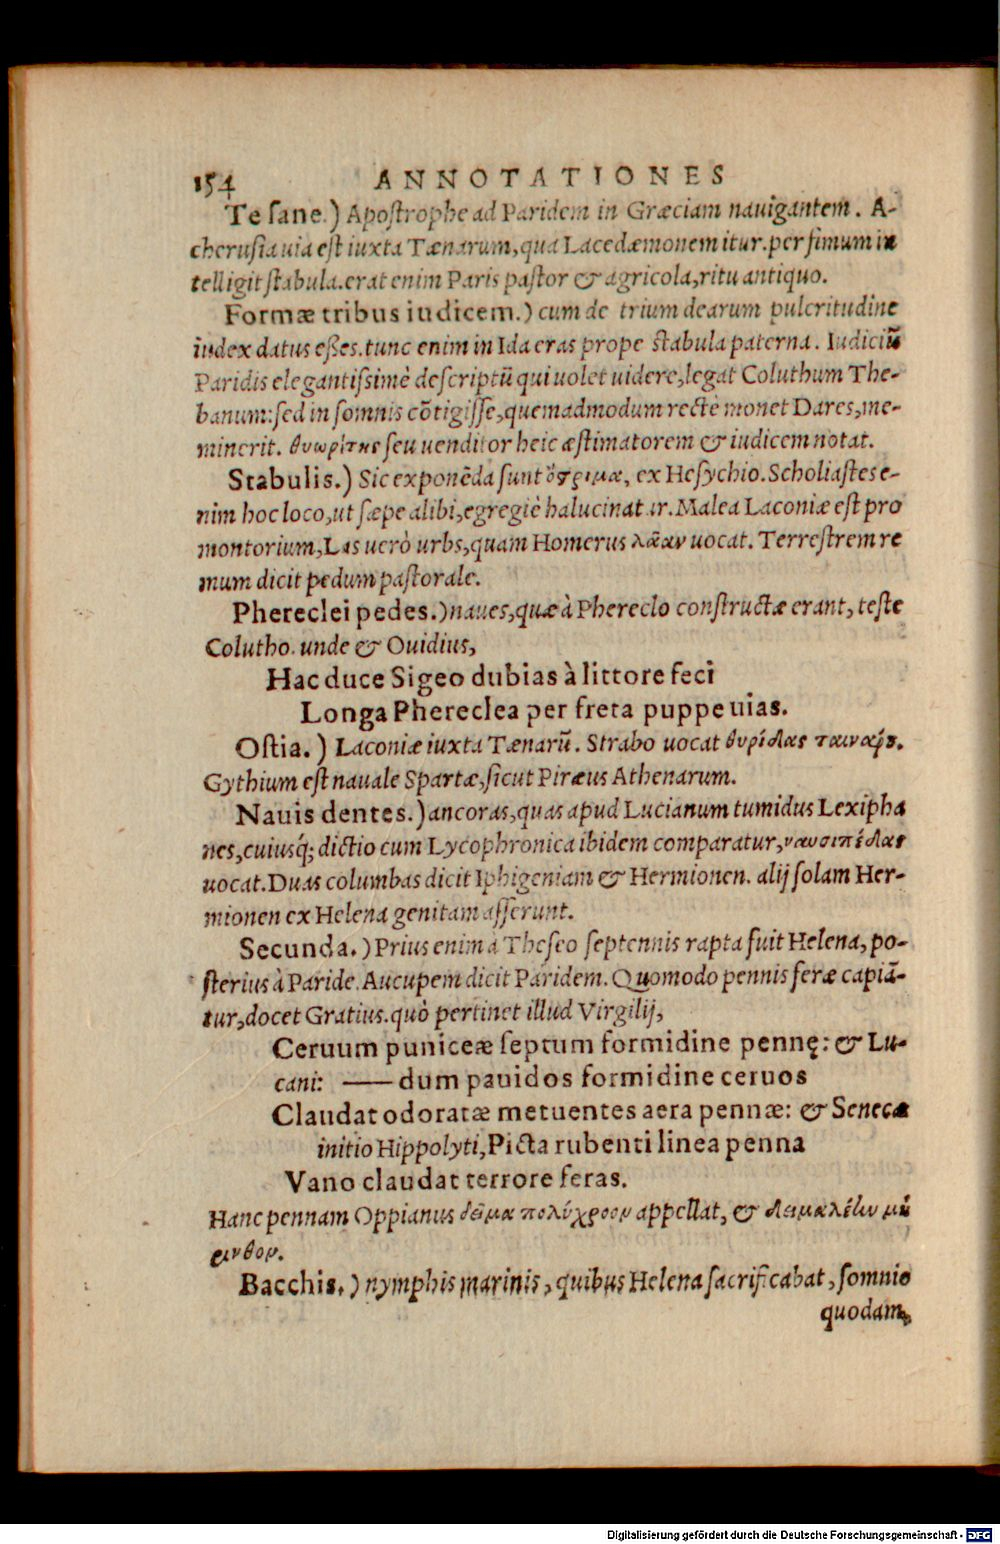 154 ANNOTATIONES
Te sane.) Apostrophe ad Paridem in Græciam nauigantem. A-
cherusia uia est iuxta Tænarum, qua Lacedæmonem itur. per simum in
telligit stabula. erat enim Paris pastor & agricola, ritu antiquo.
Formæ tribus iudicem.) cum de trium dearum pulcritudine
iudex datus eßes. tunc enim in Ida eras prope stabula paterna. Iudiciũ
Paridis elegantissimè descriptũ qui uolet uidere, legat Coluthum The-
banum: sed in somnis cõtigisse, quemadmodum rectè monet Dares, me-
minerit. θυωρίτης seu uenditor heic æstimatorem & iudicem notat.
Stabulis.) Sic exponẽda sunt ὄστριμα, ex Hesychio. Scholiastes e-
nim hoc loco, ut sæpe alibi, egregiè halucinatur. Malea Laconiæ est pro
montorium, Las uerò urbs, quam Homerus λᾶαν uocat. Terrestrem re
mum dicit pedum pastorale.
Phereclei pedes.) naues, quæ à Phereclo constructæ erant, teste
Colutho. unde & Ouidius,
Hac duce Sigeo dubias à littore feci
Longa Phereclea per freta puppe uias.
Ostia.) Laconiæ iuxta Tænarũ. Strabo uocat θυρίδας ταινάρȣ.
Gythium est nauale Spartæ, sicut Piræus Athenarum.
Nauis dentes.) ancoras, quas apud Lucianum tumidus Lexipha
nes, cuiusq́; dictio cum Lycophronica ibidem comparatur, ναυσιπέδας
uocat. Duas columbas dicit Iphigeniam & Hermionen. alij solam Her-
mionen ex Helena genitam asserunt.
Secunda.) Prius enim à Theseo septennis rapta fuit Helena, po-
sterius à Paride. Aucupem dicit Paridem. Quomodo pennis feræ capiã-
tur, docet Gratius. quò pertinet illud Virgilij,
Ceruum puniceæ septum formidine pennę: & Lu-
cani: —— dum pauidos formidine ceruos
Claudat odoratæ metuentes aera pennæ: & Senecæ
initio Hippolyti, Picta rubenti linea penna
Vano claudat terrore feras.
Hanc pennam Oppianus δεῖμα πολύχροον appellat, & δειμαλέην μή
ρινθον.
Bacchis.) nymphis marinis, quibus Helena sacrificabat, somnio
quodam,
Digitalisierung gefördert durch die Deutsche Forschungsgemeinschaft - DFG